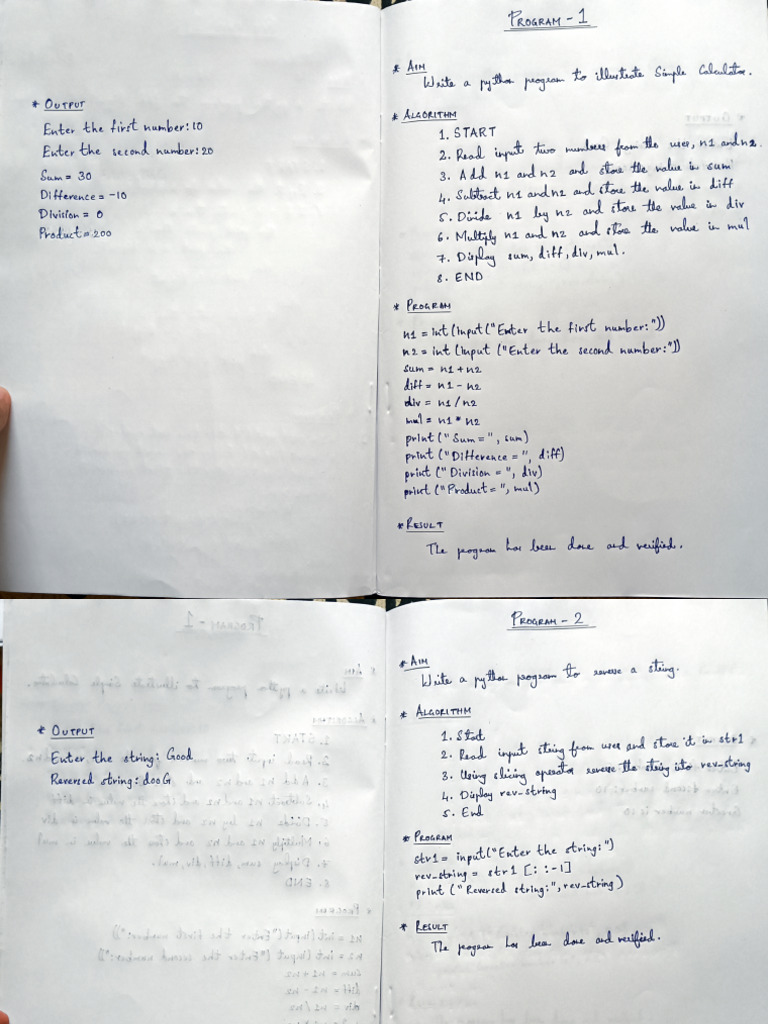 * OUTPUT
Enter the first number: 10
Enter the second number: 20
Sum = 30
Difference = -10
Division = 0
Product = 200
PROGRAM - 1
* AIM
Write a python program to illustrate Simple Calculator.
* ALGORITHM
1. START
2. Read input two numbers from the user, n1 and n2.
3. Add n1 and n2 and store the value in sum
4. Subtract n1 and n2 and store the value in diff
5. Divide n1 by n2 and store the value in div
6. Multiply n1 and n2 and store the value in mul
7. Display sum, diff, div, mul.
8. END
* PROGRAM
n1 = int(input("Enter the first number:"))
n2 = int(input ("Enter the second number:"))
sum = n1 + n2
diff = n1 - n2
div = n1 / n2
mul = n1 * n2
print ("Sum = ", sum)
print ("Difference = ", diff)
print ("Division = ", div)
print ("Product = ", mul)
* RESULT
The program has been done and verified.
* OUTPUT
Enter the string: Good
Reversed string: dooG
PROGRAM - 2
* AIM
Write a python program to reverse a string.
* ALGORITHM
1. Start
2. Read input string from user and store it in str1
3. Using slicing operator reverse the string into rev-string
4. Display rev-string
5. End
* PROGRAM
str1 = input("Enter the string:")
rev_string = str1 [: :-1]
print ("Reversed string:", rev_string)
* RESULT
The program has been done and verified.